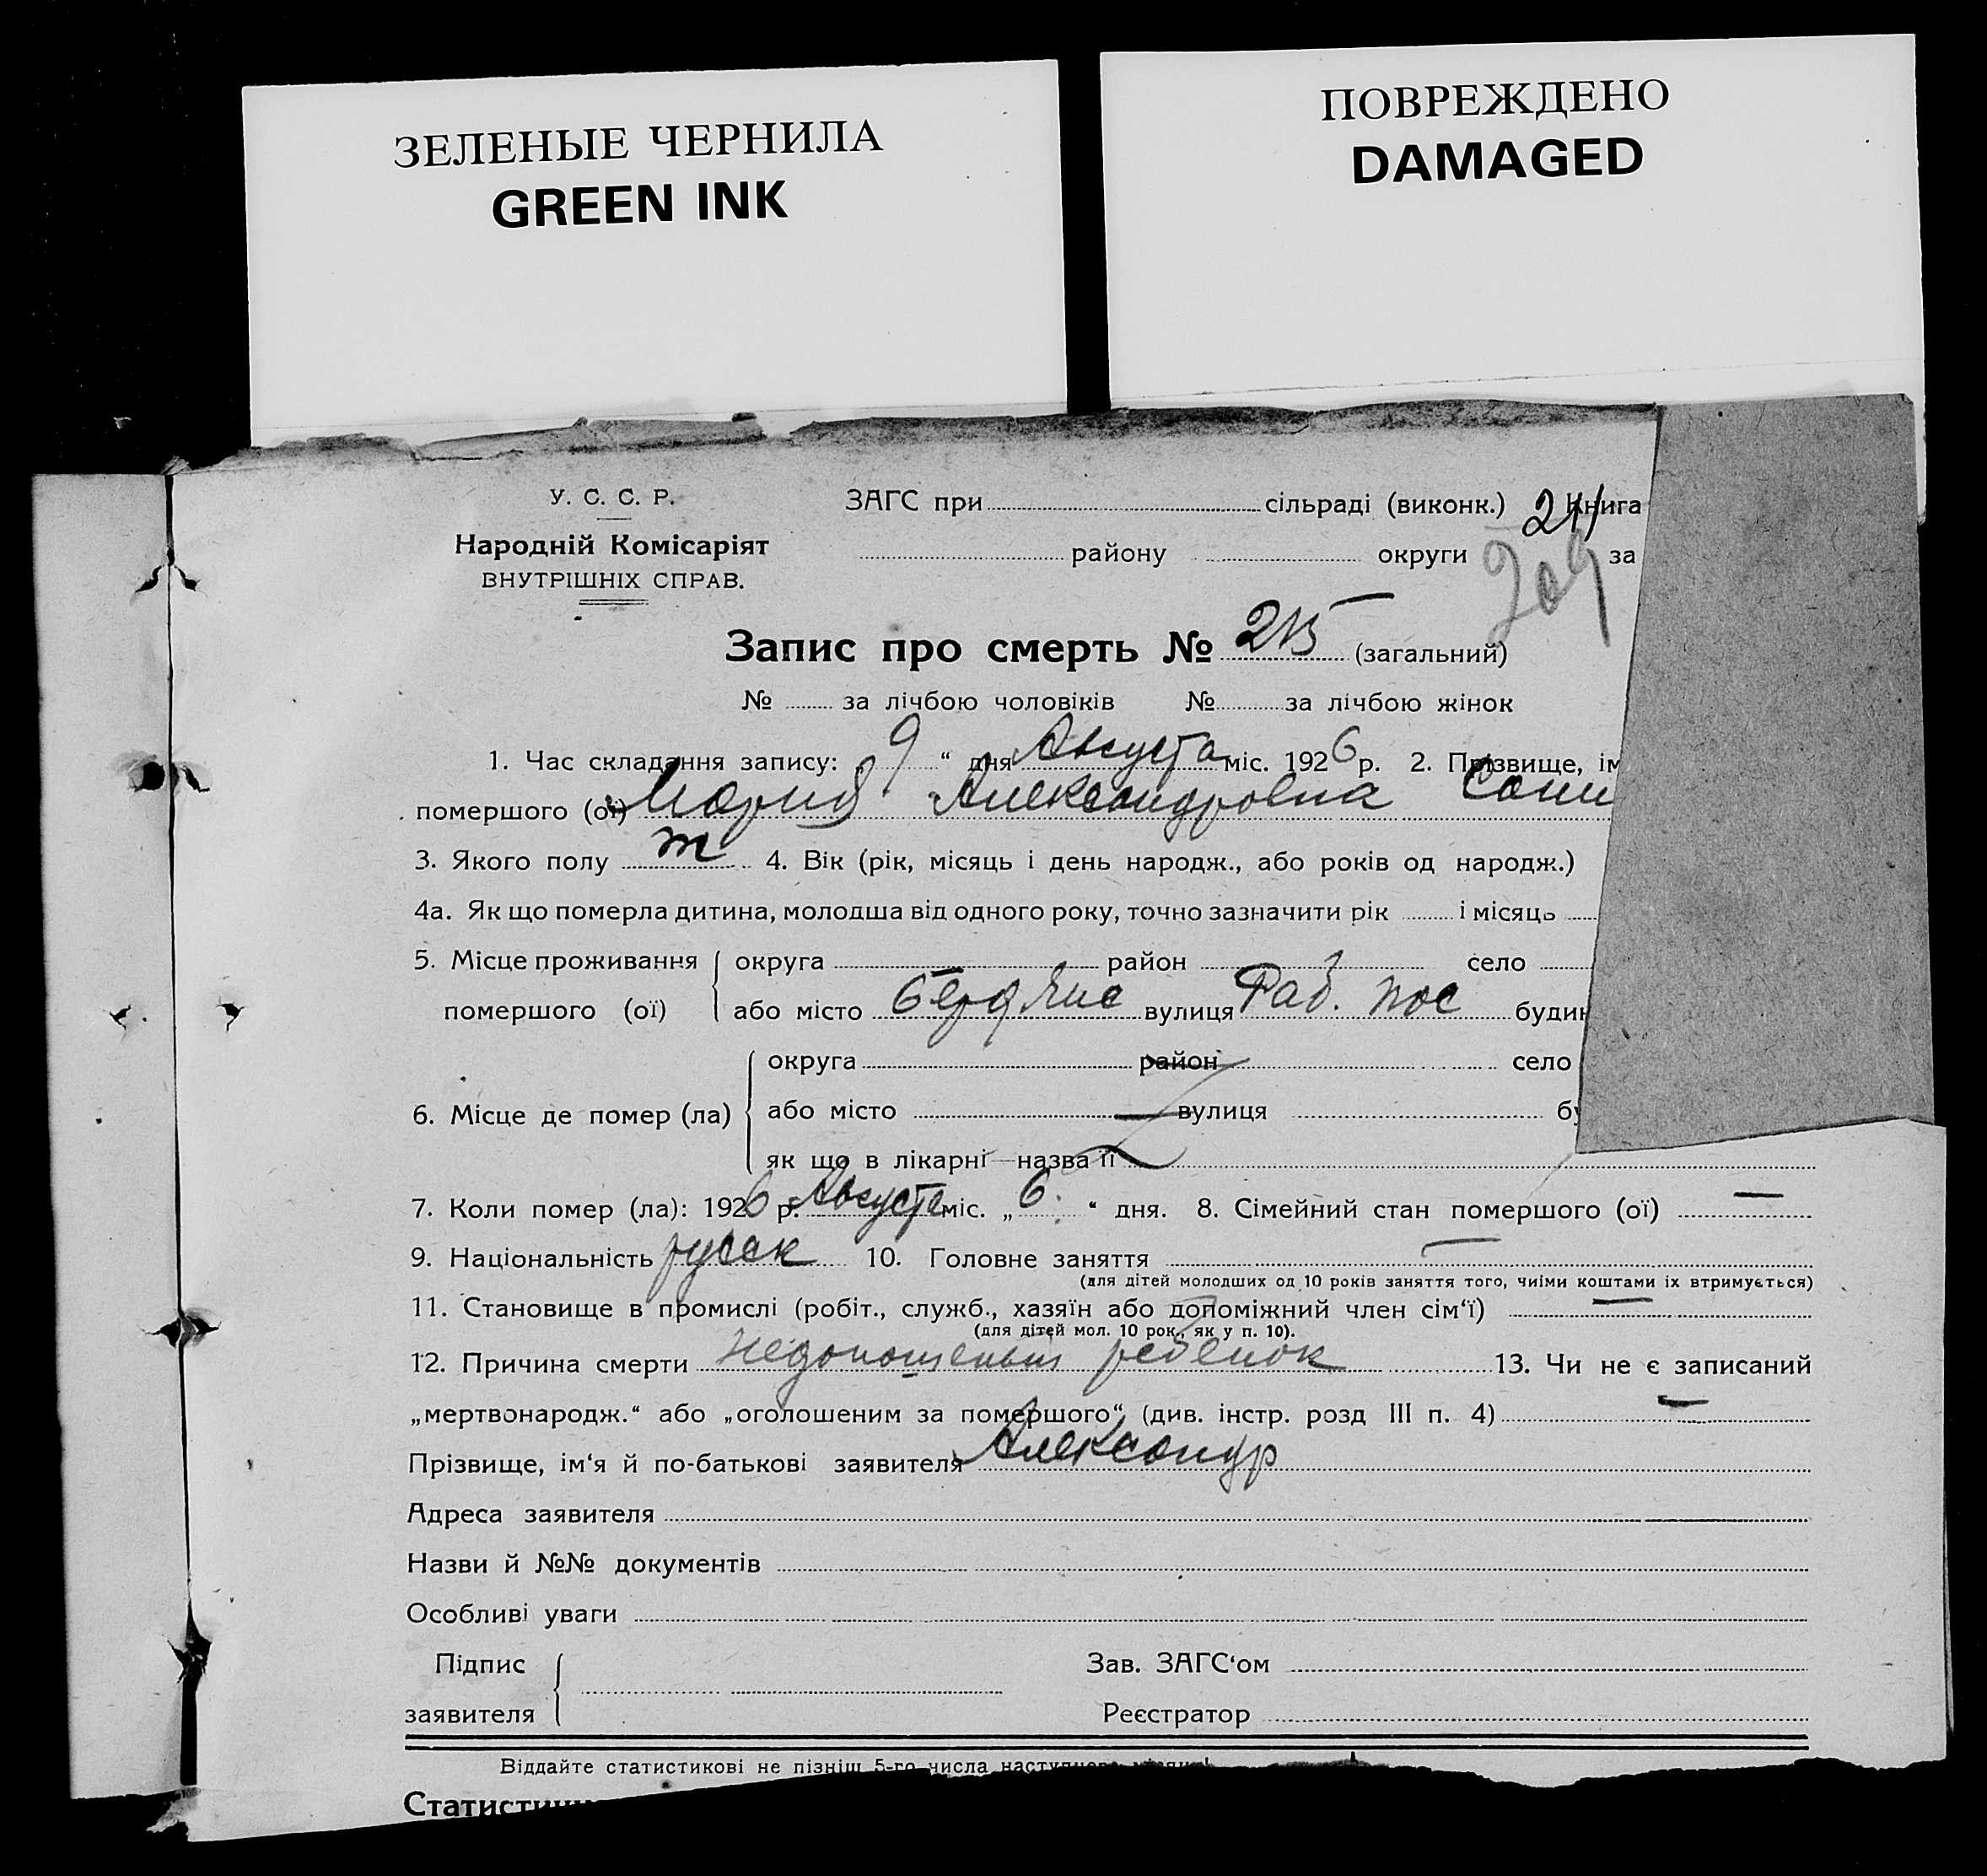 ЗЕЛЕНЫЕ ЧЕРНИЛА
GREEN INK
ПОВРЕЖДЕНО
DAMAGED
У. С. С. Р.
Народній Комісаріят
ВНУТРІШНІХ СПРАВ.
ЗАГС при сільраді (виконк.) Книга
району округи за
Запис про смерть № 215 (загальний)
№ за лічбою чоловіків № за лічбою жінок
1. Час складання запису: „ 9 “ дня Августа міс. 1926 р. 2. Прізвище, ім
помершого (ої) Мария Александровна
3. Якого полу 4. Вік (рік, місяць і день народж., або років од народж.)
4а. Як що померла дитина, молодша від одного року, точно зазначити рік і місяць
5. Місце проживання помершого (ої) округа район село
або місто вулиця Раб. пос будин
6. Місце де помер (ла) округа район село
або місто вулиця бу
як що в лікарні—назва її
7. Коли помер (ла): 1926 р. Августа міс. „ 6 “ дня. 8. Сімейний стан помершого (ої) —
9. Національність русск 10. Головне заняття —
(для дітей молодших од 10 років заняття того, чиїми коштами їх втримується)
11. Становище в промислі (робіт., служб., хазяїн або допоміжний член сім‘ї) —
(для дітей мол. 10 рок., як у п. 10).
12. Причина смерти недоношеный ребенок 13. Чи не є записаний
„мертвонародж.“ або „оголошеним за помершого“ (див. інстр. розд III п. 4) —
Прізвище, ім‘я й по-батькові заявителя Александр
Адреса заявителя
Назви й №№ документів
Особливі уваги
Підпис заявителя
Зав. ЗАГС‘ом
Реєстратор
Віддайте статистикові не пізніш 5-го числа наступного місяця!